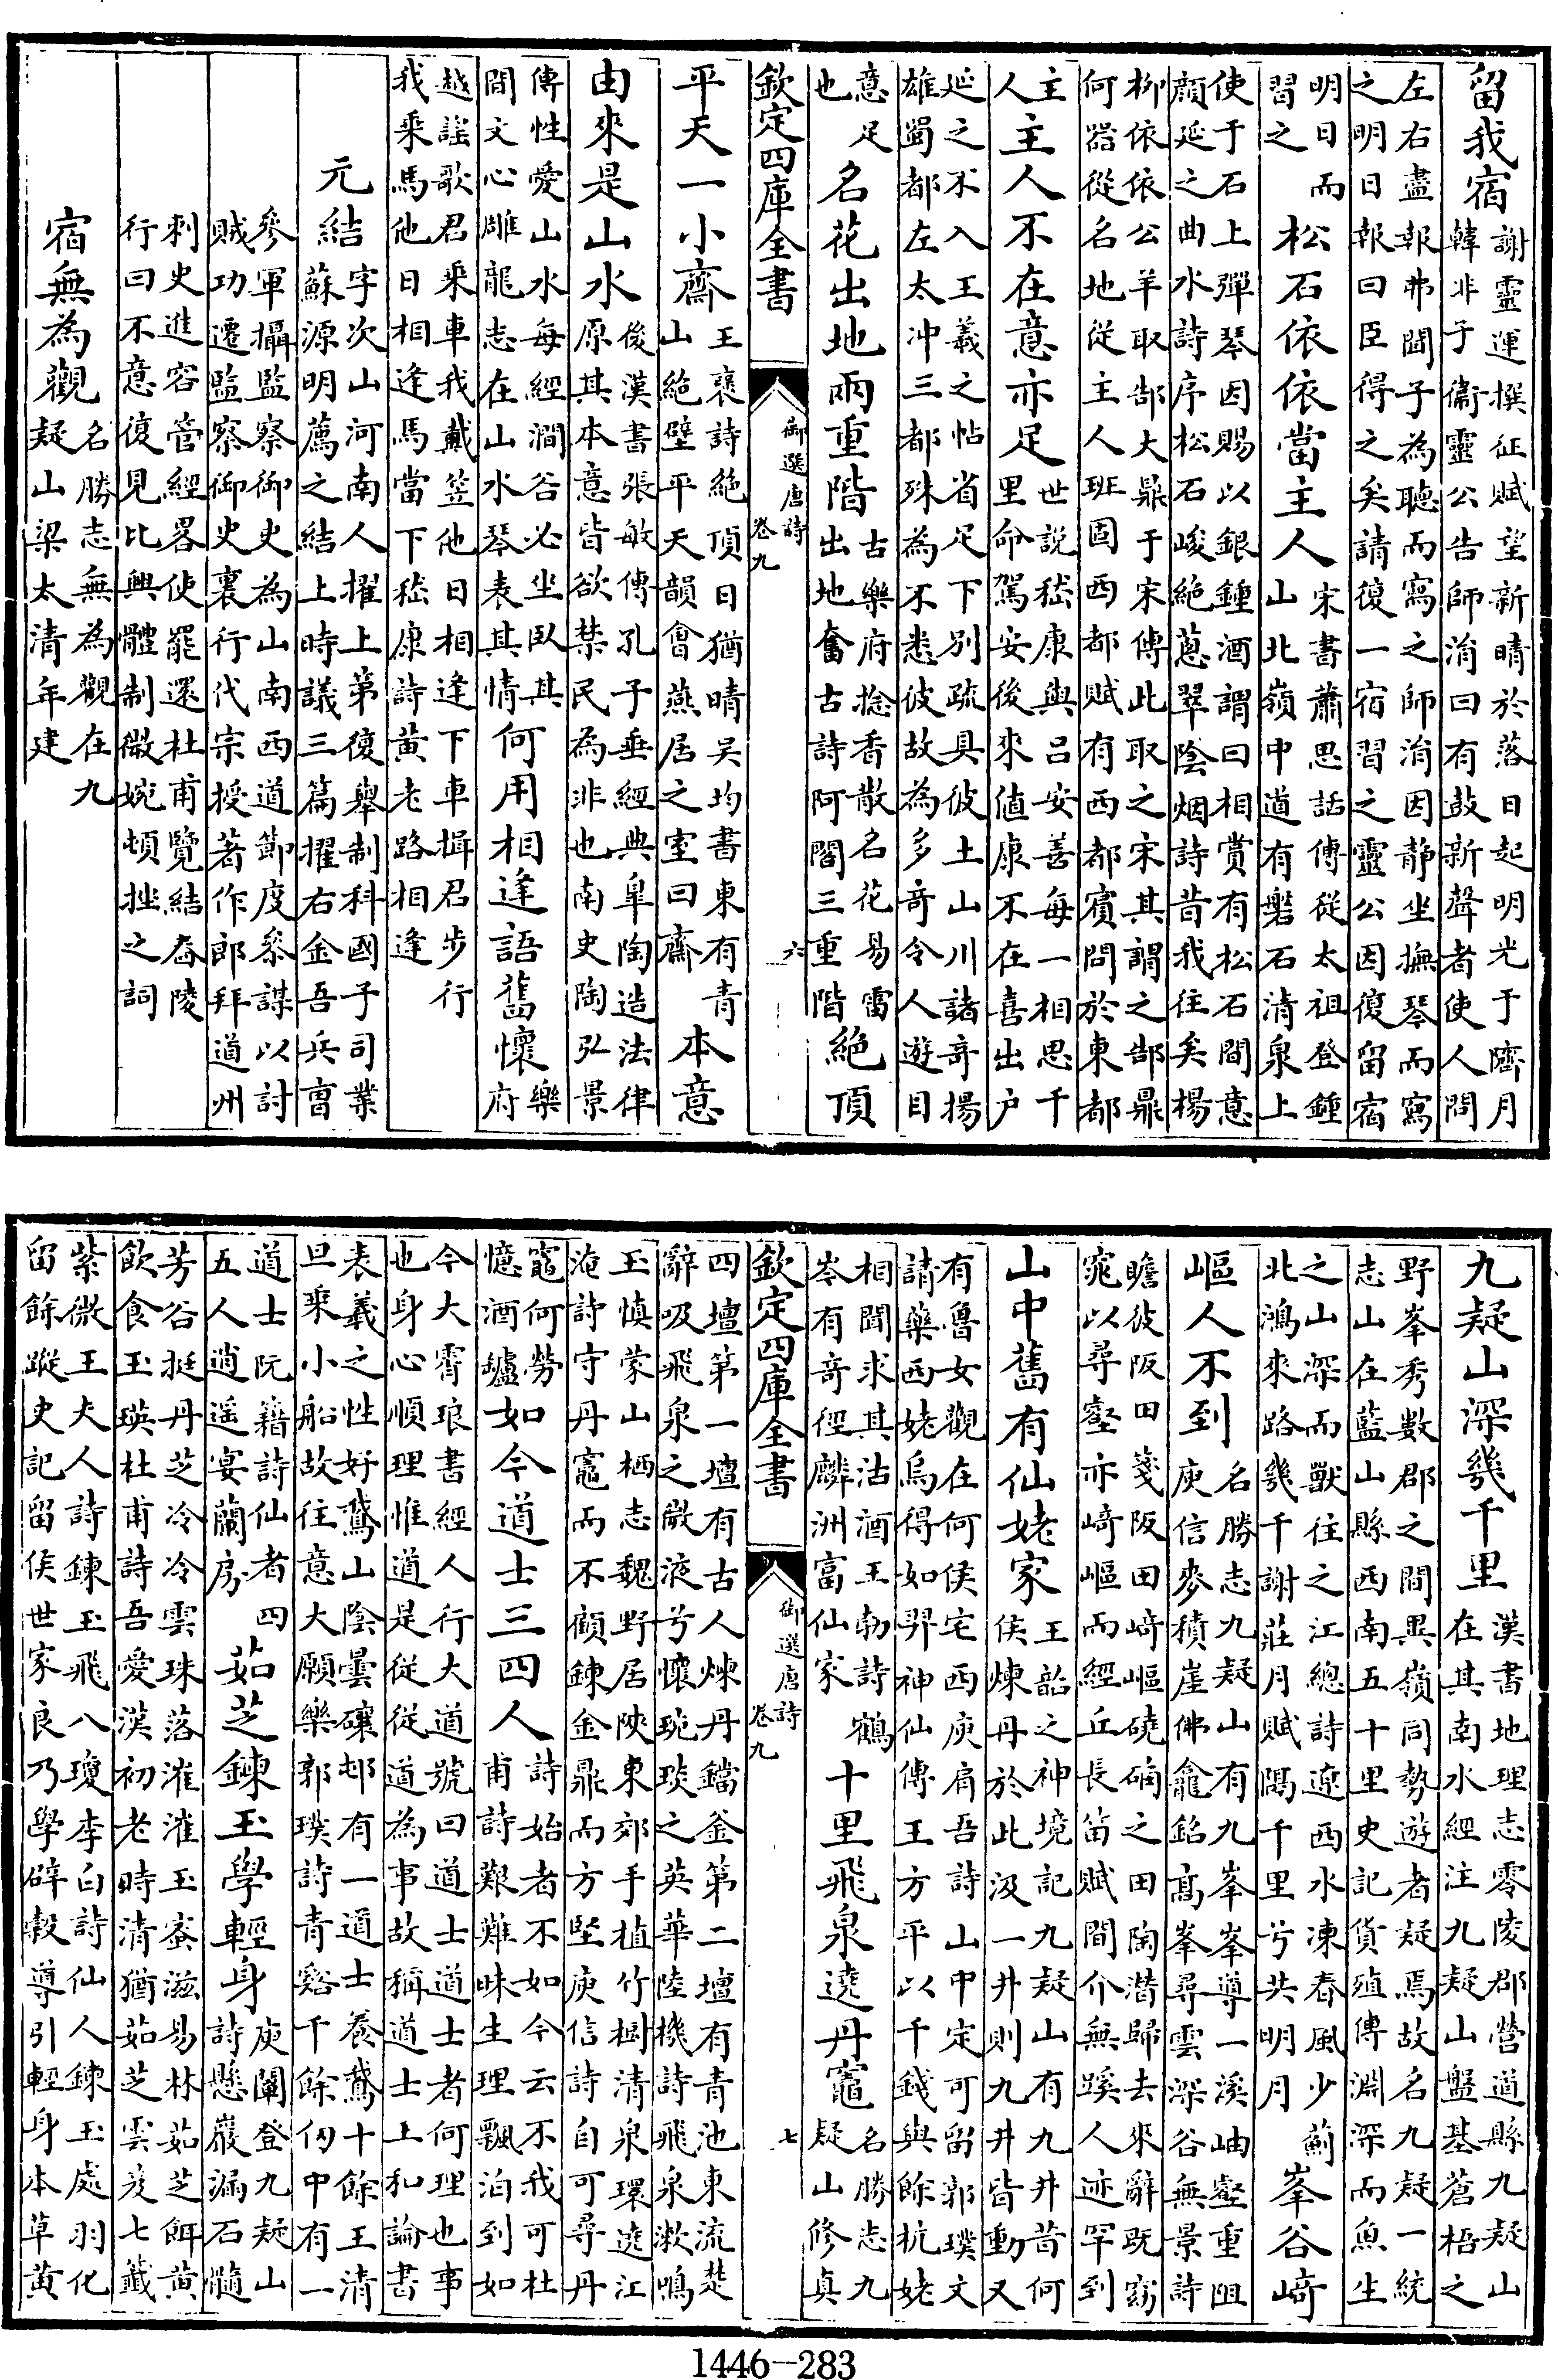 留我宿
謝靈運撰征賦望新晴於落日起明光于隮月
韓非子衞靈公告師涓曰有鼓新聲者使人問
左右盡報弗聞子為聽而寫之師涓因静坐撫琴而寫
之明日報曰臣得之矣請復一宿習之靈公因復留宿
明日而
習之
松石依依當主人
宋書蕭思話傳從太祖登鍾
山北嶺中道有磐石清泉上
使于石上彈琴因賜以銀鍾酒謂曰相賞有松石間意
顔延之曲水詩序松石峻絶蔥翠陰烟詩昔我往矣楊
柳依依公羊取郜大鼎于宋傳此取之宋其謂之郜鼎
何器從名地從主人班固西都賦有西都賓問於東都
主
人
主人不在意亦足
世説嵇康與呂安善每一相思千
里命駕安後來值康不在喜出户
延之不入王羲之帖省足下別疏具彼土山川諸竒揚
雄蜀都左太冲三都殊為不悉彼故為多竒令人遊目
意足
也
名花出地兩重階
古樂府捻香散名花易雷
出地奮古詩阿閣三重階
絶頂
欽定四庫全書
御選唐詩
卷九
六
平天一小齋
王褒詩絶頂日猶晴吴均書東有青
山絶壁平天韻會燕居之室曰齋
本意
由來是山水
後漢書張敏傳孔子垂經典臯陶造法律
原其本意皆欲禁民為非也南史陶弘景
傳性愛山水每經澗谷必坐臥其
間文心雕龍志在山水琴表其情
何用相逢語舊懷
樂
府
越謡歌君乘車我戴笠他日相逢下車揖君步行
我乘馬他日相逢馬當下嵇康詩黄老路相逢
元結
字次山河南人擢上第復舉制科國子司業
蘇源明薦之結上時議三篇擢右金吾兵曹
參軍攝監察御史為山南西道節度叅謀以討
賊功遷監察御史裏行代宗授著作郎拜道州
刺史進容管經畧使罷還杜甫覽結舂陵
行曰不意復見比興體制微婉頓挫之詞
宿無為觀
名勝志無為觀在九
疑山梁太清年建
九疑山深幾千里
漢書地理志零陵郡營道縣九疑山
在其南水經注九疑山盤基蒼梧之
野峯秀數郡之間異嶺同勢遊者疑焉故名九疑一統
志山在藍山縣西南五十里史記貨殖傳淵深而魚生
之山深而獸往之江總詩遼西水凍春風少薊
北鴻來路幾千謝莊月賦隔千里兮共明月
峯谷﨑
嶇人不到
名勝志九疑山有九峯峯導一溪岫壑重阻
庾信麥積崖佛龕銘高峯尋雲深谷無景詩
瞻彼阪田箋阪田﨑嶇磽确之田陶潛歸去來辭既窈
窕以尋壑亦﨑嶇而經丘長笛賦間介無蹊人迹罕到
山中舊有仙姥家
王韶之神境記九疑山有九井昔何
侯煉丹於此汲一井則九井皆動又
有魯女觀在何侯宅西庾肩吾詩山中定可留郭璞文
請藥西姥烏得如羿神仙傳王方平以千錢與餘杭姥
相聞求其沽酒王勃詩鶴
岑有竒徑麟洲富仙家
十里飛泉遶丹竈
名勝志九
疑山修真
欽定四庫全書
御選唐詩
卷九
七
四壇第一壇有古人煉丹鐺釜第二壇有青池東流楚
辭吸飛泉之微液兮懷琬琰之英華陸機詩飛泉漱鳴
玉慎蒙山栖志魏野居陜東郊手植竹樹清泉環遶江
淹詩守丹竈而不顧鍊金鼎而方堅庾信詩自可尋丹
竈何勞
憶酒鑪
如今道士三四人
詩始者不如今云不我可杜
甫詩艱難昧生理飄泊到如
今大霄琅書經人行大道號曰道士道士者何理也事
也身心順理惟道是從從道為事故稱道士上和論書
表羲之性好鵞山陰曇𥖝邨有一道士養鵞十餘王清
旦乘小船故往意大願樂郭璞詩青谿千餘仞中有一
道士阮籍詩仙者四
五人逍遥宴蘭房
茹芝鍊玉學輕身
庾闡登九疑山
詩懸巖漏石髓
芳谷挺丹芝泠泠雲珠落漼漼玉蜜滋易林茹芝餌黄
飲食玉瑛杜甫詩吾愛漢初老時清猶茹芝雲笈七籤
紫微王夫人詩鍊玉飛八瓊李白詩仙人鍊玉處羽化
留餘蹤史記留侯世家良乃學辟穀導引輕身本草黄
1446—283